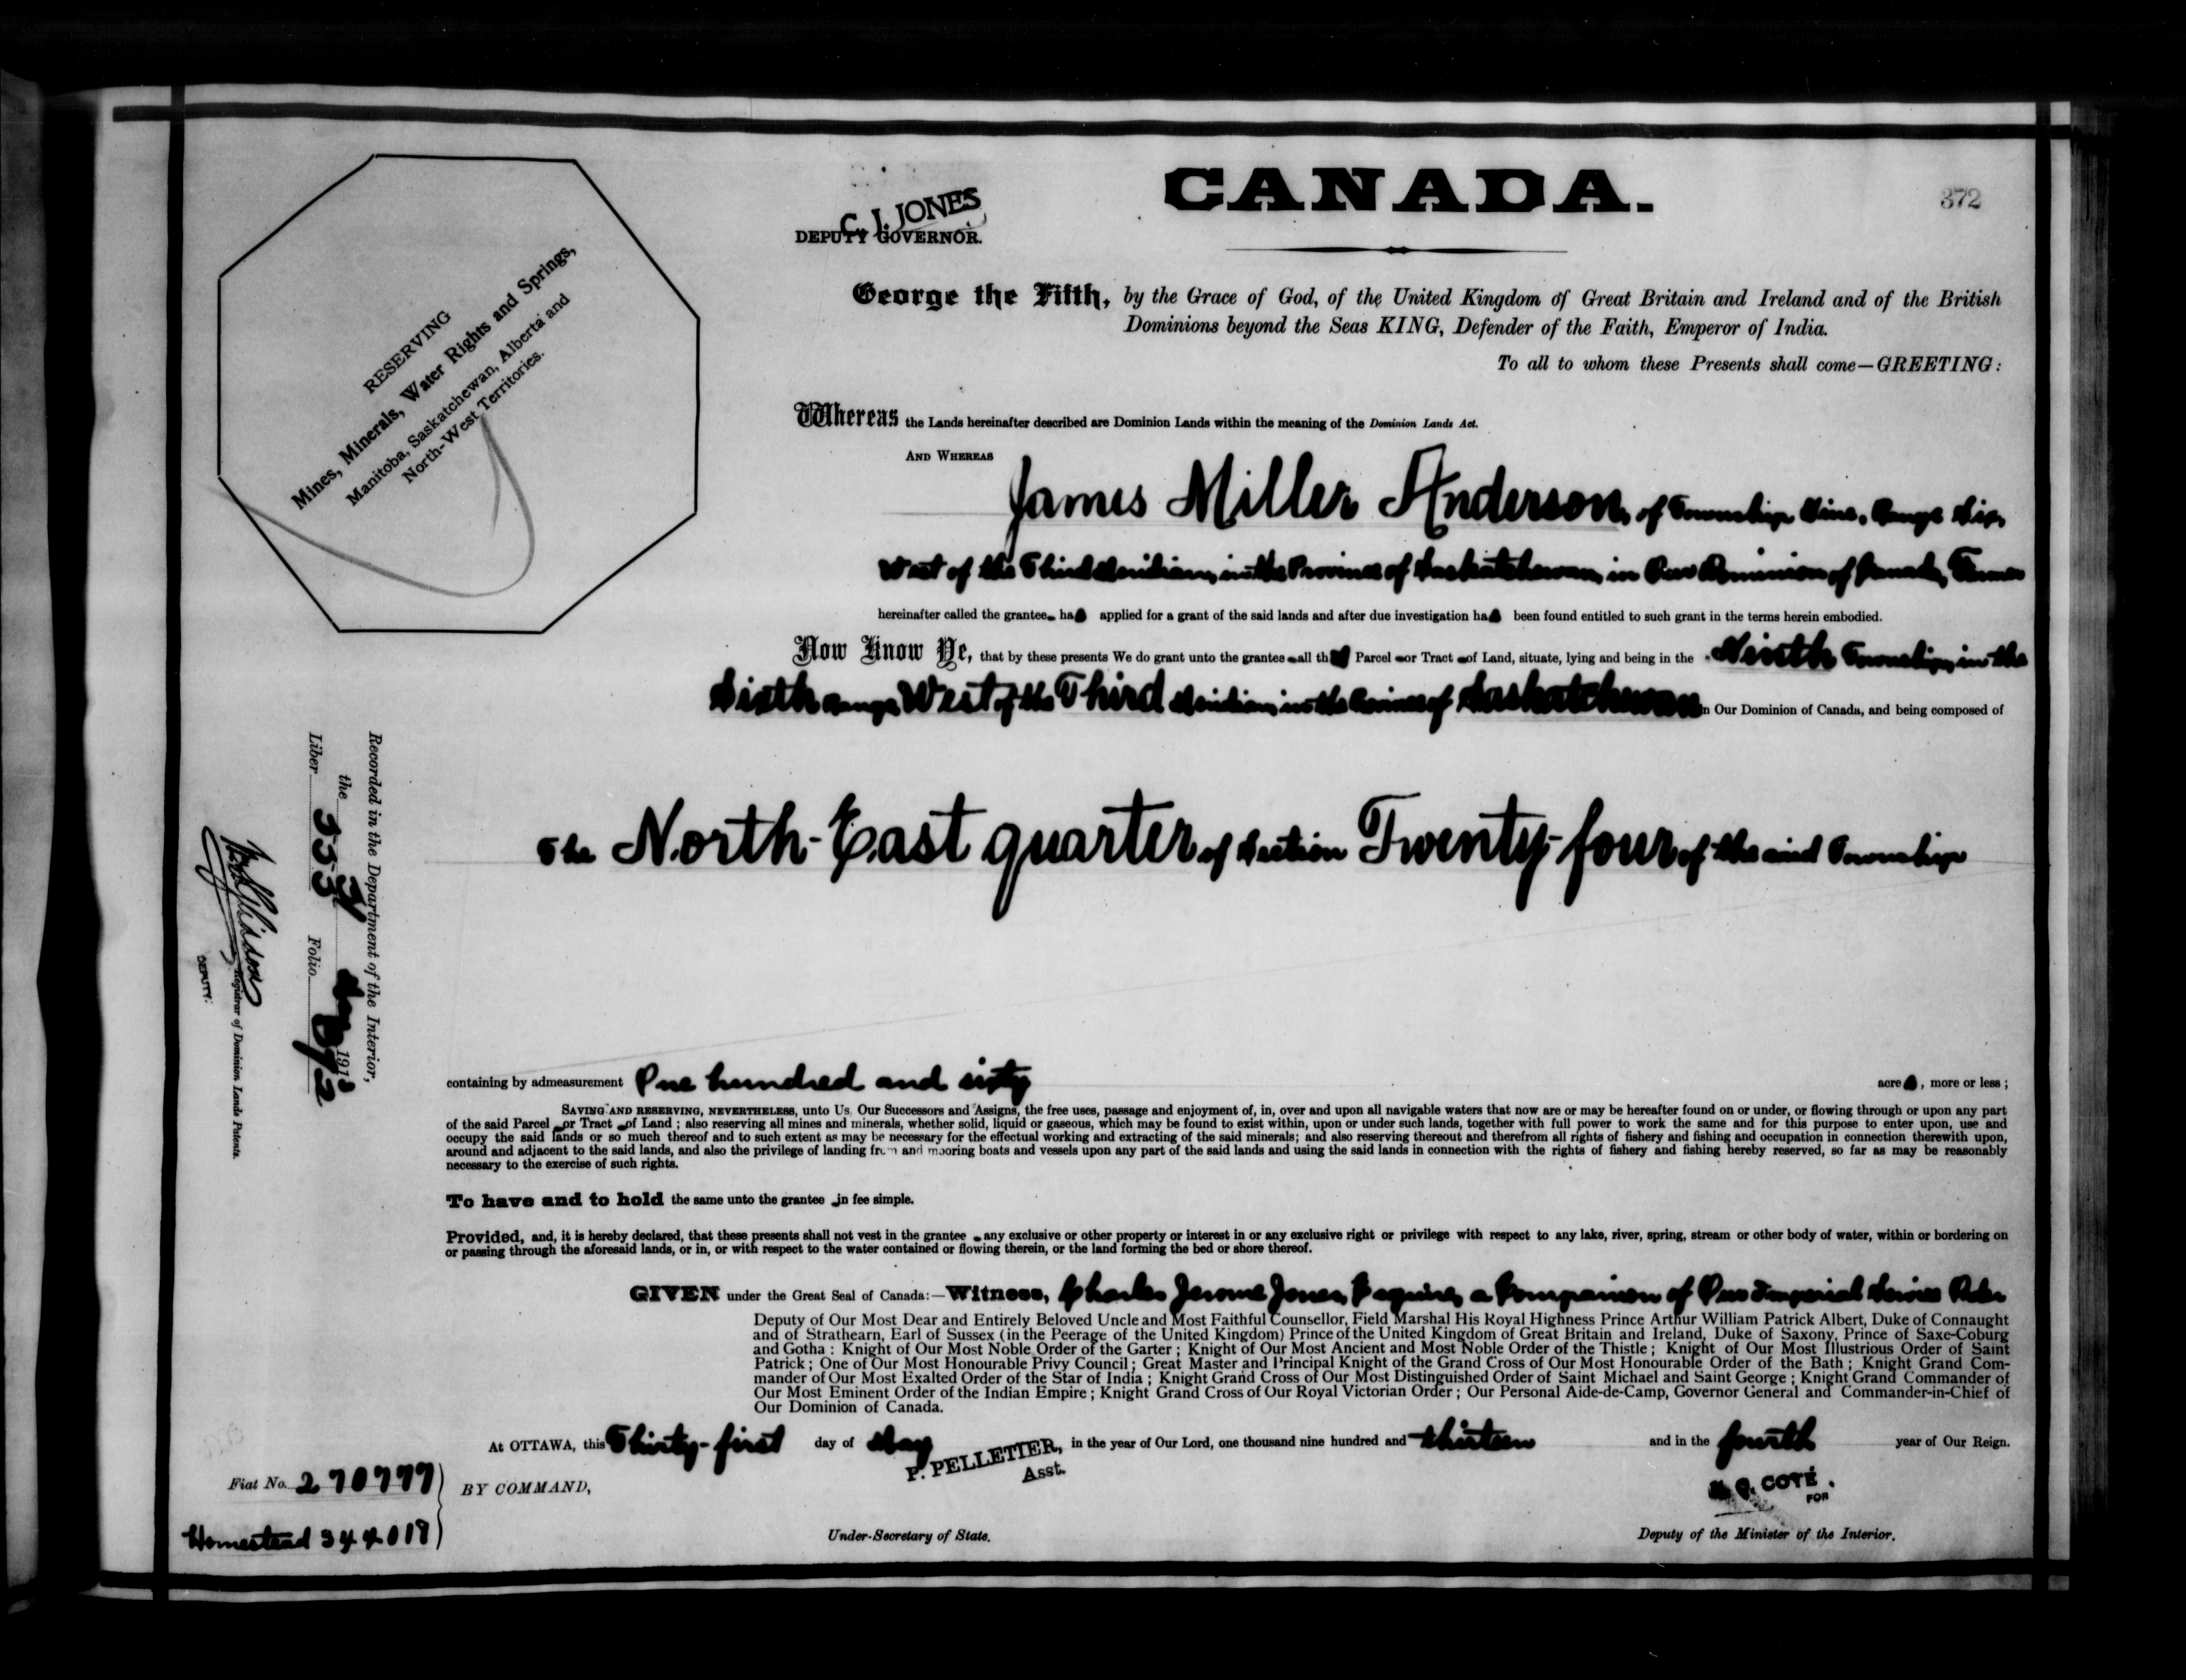 CANADA.
372
C. J. JONES
DEPUTY GOVERNOR.
RESERVING
Mines, Minerals, Water Rights and Springs,
Manitoba, Saskatchewan, Alberta and
North-West Territories.
George the Fifth, by the Grace of God, of the United Kingdom of Great Britain and Ireland and of the British
Dominions beyond the Seas KING, Defender of the Faith, Emperor of India.
To all to whom these Presents shall come—GREETING:
Whereas the Lands hereinafter described are Dominion Lands within the meaning of the Dominion Lands Act.
AND WHEREAS
James Miller Anderson, of Township Nine, Range Six,
West of the Third Meridian, in the Province of Saskatchewan, in Our Dominion of Canada, Farmer
hereinafter called the grantee has applied for a grant of the said lands and after due investigation has been found entitled to such grant in the terms herein embodied.
Now Know Ye, that by these presents We do grant unto the grantee all that Parcel or Tract of Land, situate, lying and being in the Ninth Township, in the
Sixth Range, West of the Third Meridian, in the Province of Saskatchewan in Our Dominion of Canada, and being composed of
The North-East quarter of Section Twenty-four of the said Township
containing by admeasurement One hundred and sixty acres, more or less;
SAVING AND RESERVING, NEVERTHELESS, unto Us, Our Successors and Assigns, the free uses, passage and enjoyment of, in, over and upon all navigable waters that now are or may be hereafter found on or under, or flowing through or upon any part
of the said Parcel or Tract of Land; also reserving all mines and minerals, whether solid, liquid or gaseous, which may be found to exist within, upon or under such lands, together with full power to work the same and for this purpose to enter upon, use and
occupy the said lands or so much thereof and to such extent as may be necessary for the effectual working and extracting of the said minerals; and also reserving thereout and therefrom all rights of fishery and fishing and occupation in connection therewith upon,
around and adjacent to the said lands, and also the privilege of landing from and mooring boats and vessels upon any part of the said lands and using the said lands in connection with the rights of fishery and fishing hereby reserved, so far as may be reasonably
necessary to the exercise of such rights.
To have and to hold the same unto the grantee in fee simple.
Provided, and, it is hereby declared, that these presents shall not vest in the grantee any exclusive or other property or interest in or any exclusive right or privilege with respect to any lake, river, spring, stream or other body of water, within or bordering on
or passing through the aforesaid lands, or in, or with respect to the water contained or flowing therein, or the land forming the bed or shore thereof.
GIVEN under the Great Seal of Canada:—Witness, Charles Jerome Jones, Esquire, a Companion of Our Imperial Service Order
Deputy of Our Most Dear and Entirely Beloved Uncle and Most Faithful Counsellor, Field Marshal His Royal Highness Prince Arthur William Patrick Albert, Duke of Connaught
and of Strathearn, Earl of Sussex (in the Peerage of the United Kingdom) Prince of the United Kingdom of Great Britain and Ireland, Duke of Saxony, Prince of Saxe-Coburg
and Gotha: Knight of Our Most Noble Order of the Garter; Knight of Our Most Ancient and Most Noble Order of the Thistle; Knight of Our Most Illustrious Order of Saint
Patrick; One of Our Most Honourable Privy Council; Great Master and Principal Knight of the Grand Cross of Our Most Honourable Order of the Bath; Knight Grand Com-
mander of Our Most Exalted Order of the Star of India; Knight Grand Cross of Our Most Distinguished Order of Saint Michael and Saint George; Knight Grand Commander of
Our Most Eminent Order of the Indian Empire; Knight Grand Cross of Our Royal Victorian Order; Our Personal Aide-de-Camp, Governor General and Commander-in-Chief of
Our Dominion of Canada.
At OTTAWA, this Thirty-first day of May in the year of Our Lord, one thousand nine hundred and thirteen and in the fourth year of Our Reign.
P. PELLETIER,
Asst.
BY COMMAND,
COTÉ.
FOR
Under-Secretary of State.
Deputy of the Minister of the Interior.
Fiat No. 270777
Homestead 344018
Recorded in the Department of the Interior,
the 1913
Liber 333 Folio 372
Registrar of Dominion Lands Patents.
DEPUTY.